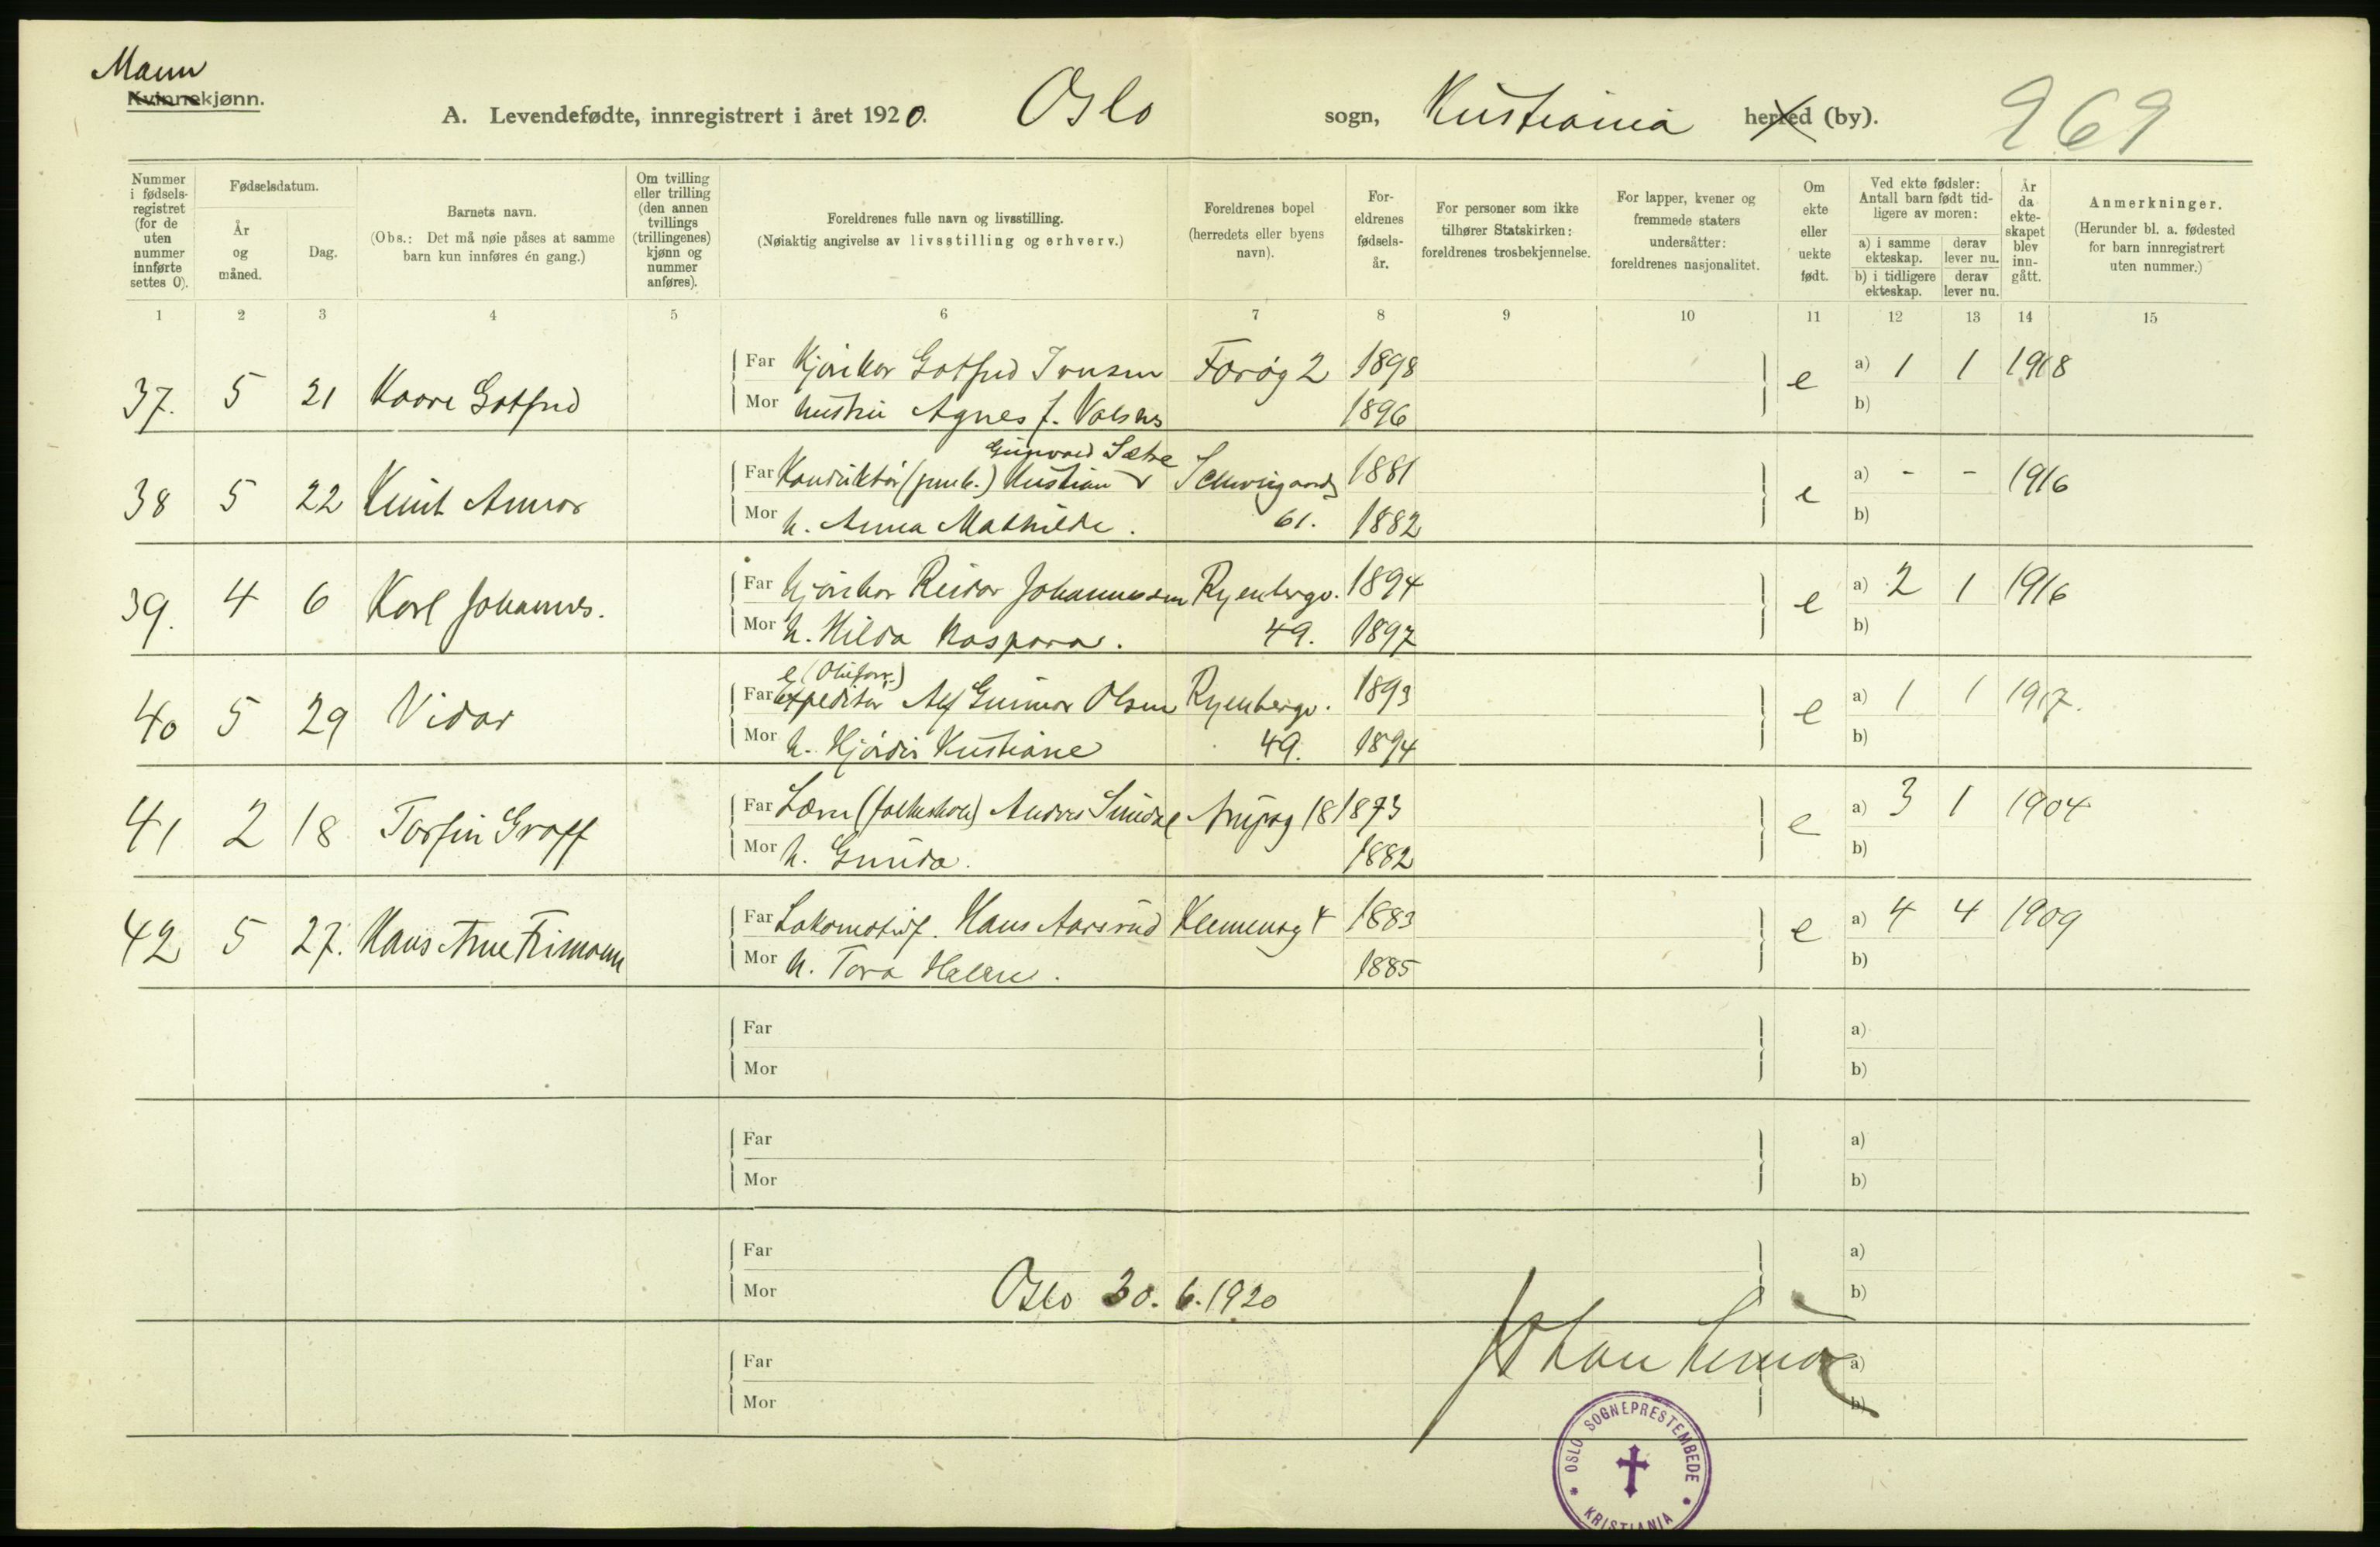 Mann
Kvinnekjønn.
A. Levendefødte, innregistrert i året 1920. Oslo sogn, Kristiania herred (by). 969
Nummer i fødselsregistret (for de uten nummer innførte settes 0).
Fødselsdatum.
År og måned.
Dag.
Barnets navn.
(Obs.: Det må nøie påses at samme barn kun innføres én gang.)
Om tvilling eller trilling (den annen tvillings (trillingenes) kjønn og nummer anføres).
Foreldrenes fulle navn og livsstilling.
(Nøiaktig angivelse av livsstilling og erhverv.)
Foreldrenes bopel (herredets eller byens navn).
Foreldrenes fødselsår.
For personer som ikke tilhører Statskirken: foreldrenes trosbekjennelse.
For lapper, kvener og fremmede staters undersåtter: foreldrenes nasjonalitet.
Om ekte eller uekte født.
Ved ekte fødsler: Antall barn født tidligere av moren:
a) i samme ekteskap. derav lever nu.
b) i tidligere ekteskap. derav lever nu.
År da ekteskapet blev inngått.
Anmerkninger.
(Herunder bl. a. fødested for barn innregistrert uten nummer.)
1 2 3 4 5 6 7 8 9 10 11 12 13 14 15
37. 5 21 Kaare Gotfred Far Kjørekar Gotfred Iversen Farøg 2 1898 e a) 1 1 1918
Mor hustru Agnes f. 1896 b)
Gunvald Sætre
38 5 22 Knut Annar Far Konduktør Kristian Schweigaards 1881 e a) - - 1916
Mor h. Anna Mathilde. 61. 1882 b)
39. 4 6 Karl Johannes. Far Kjørekar Reidar Johannessen Ryenbergv. 1894 e a) 2 1 1916
Mor h. Hilda Kaspara. 49. 1897 b)
40 5 29 Vidar Far expeditør Alf Gunnar Olsen Ryenbergv. 1893 e a) 1 1 1917.
Mor h. Hjørdis Kristiane 49. 1894 b)
41 2 18 Torfin Graff Far Lærer (folkeskole) Andres Sundal 18 1873 e a) 3 1 1904
Mor h. Gunda. 1882 b)
42 5 27. Hans Arne Frimann Far Lokomotivf. Hans Aarsrud Klemensg 4 1883 e a) 4 4 1909
Mor h. Tora Helene. 1885 b)
Far a)
Mor b)
Far a)
Mor b)
Far a)
Mor Oslo 30.6.1920 b)
Far Johan a)
Mor b)
OSLO SOGNEPRESTEMBEDE
KRISTIANIA